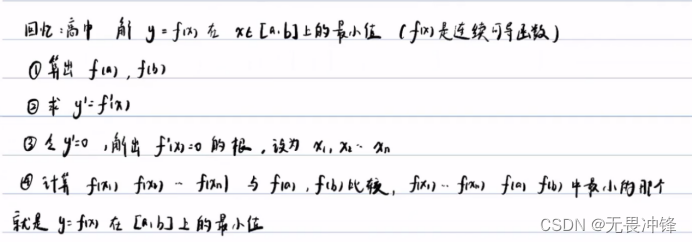 回忆:高中 解 y=f(x) 在 x∈[a,b]上的最小值 (f(x)是连续可导函数)
①算出 f(a), f(b)
②求 y'=f'(x)
③令y'=0,解出 f'(x)=0 的根,设为 x₁, x₂ … xₙ
④计算 f(x₁) f(x₂) … f(xₙ) 与 f(a), f(b)比较, f(x₁) … f(xₙ) f(a) f(b) 中最小的那个
就是 y=f(x) 在 [a,b]上的最小值
CSDN @无畏冲锋